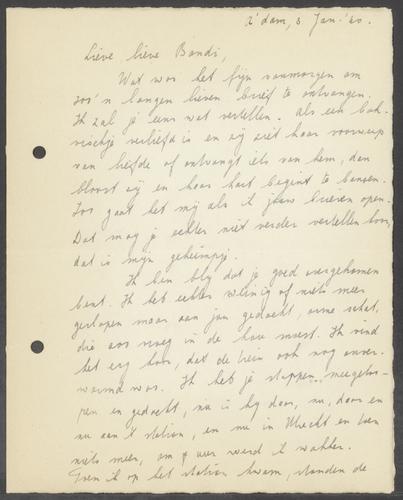 A'dam, 3 Jan. '40.
Lieve lieve Bandi,
Wat was het fijn vanmorgen om
zoo'n langen lieven brief te ontvangen.
Ik zal je eens wat vertellen. Als een bak-
vischje verliefd is en zij ziet haar voorwerp
van liefde of ontvangt iets van hem, dan
bloost zij en haar hart begint te bonzen.
Zoo gaat het mij als ik jouw brieven open.
Dat mag je echter niet verder vertellen hoor,
dat is mijn geheimpje.
Ik ben blij dat je goed overgekomen
bent. Ik heb echter weinig of niets meer
geslapen maar aan jou gedacht, arme schat,
die zoo vroeg in de kou moest. Ik vind
het erg hoor, dat de trein ook nog onver-
warmd was. Ik heb je stappen meegelo-
pen en gedacht, nu is hij daar, nu daar en
nu aan 't station, en nu in Utrecht en toen
niets meer, om 9 uur werd ik wakker.
Toen ik op het station kwam, stonden de